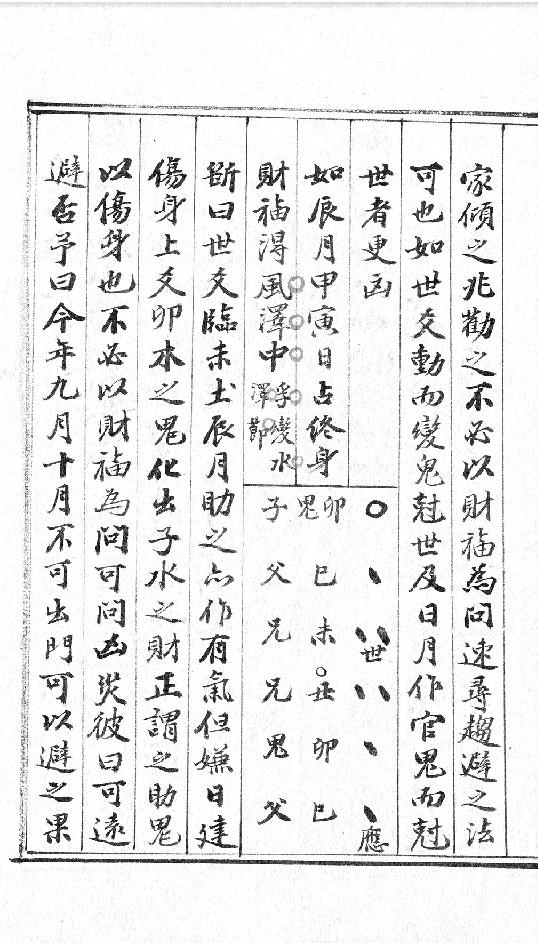 家傾之兆勸之不必以財福為問速尋趨避之法
可也如世爻動而變鬼尅世及日月作官鬼而尅
世者更凶
〇 、 、、世 、、 、 、應
如辰月甲寅日占終身
卯鬼 巳 未 丑 卯 巳
財福淂風澤中孚變水澤節
子 父 兄 兄 鬼 父
斷曰世爻臨未土辰月助之亦作有氣但嫌日建
傷身上爻卯木之鬼化出子水之財正謂之助鬼
以傷身也不必以財福為問可問凶災彼曰可遠
避否予曰今年九月十月不可出門可以避之果